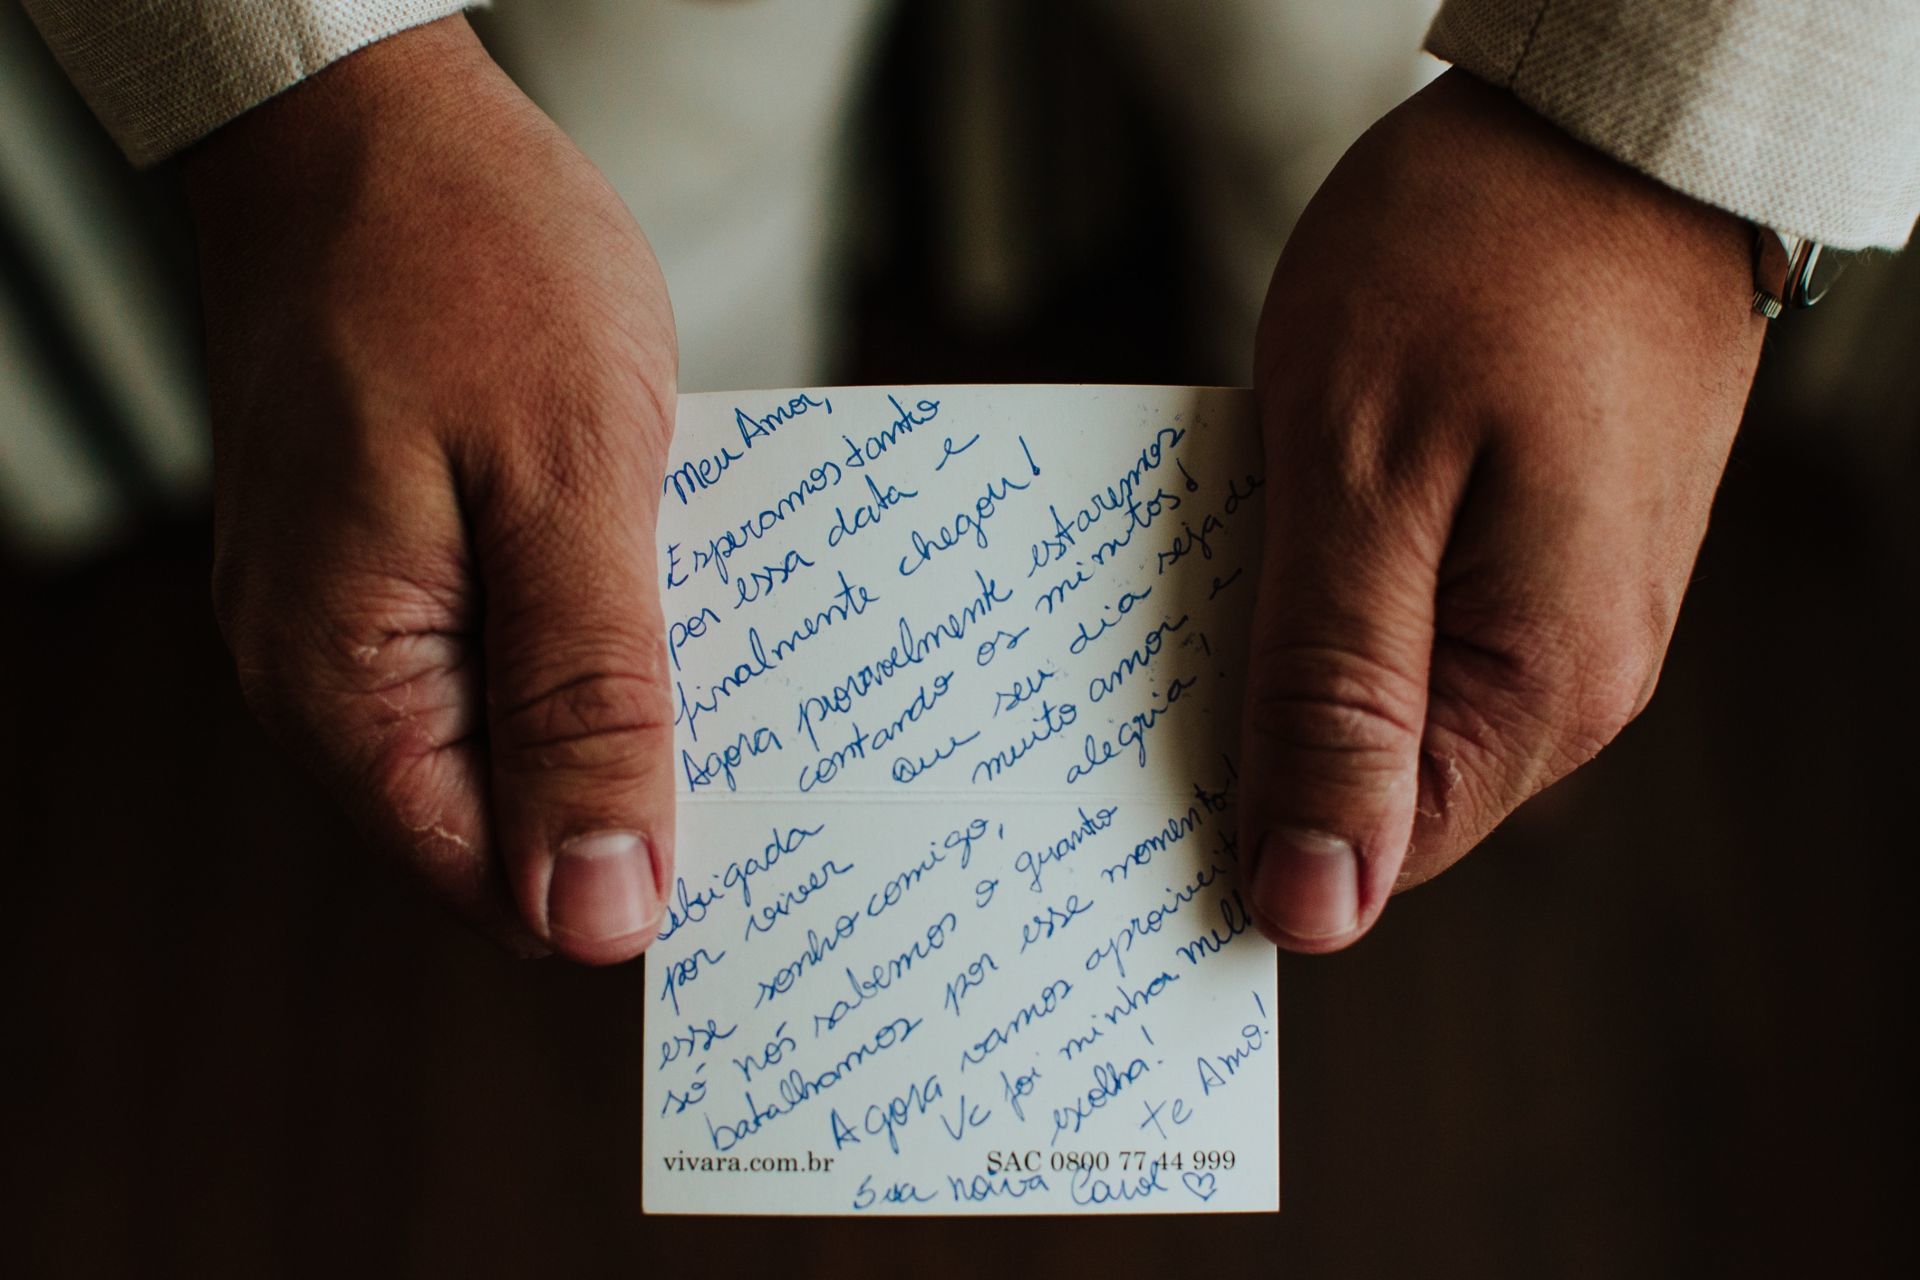 Meu Amor,
Esperamos tanto
por essa data e
finalmente chegou!
Agora provavelmente estaremos
contando os minutos!
Que seu dia seja de
muito amor e
alegria!
Obrigada
por viver
esse sonho comigo,
só nós sabemos o quanto
batalhamos por esse momento!
Agora vamos aproveit
Vc foi minha melh
escolha!
te Amo!
vivara.com.br SAC 0800 77 44 999
Sua noiva Carol ♡